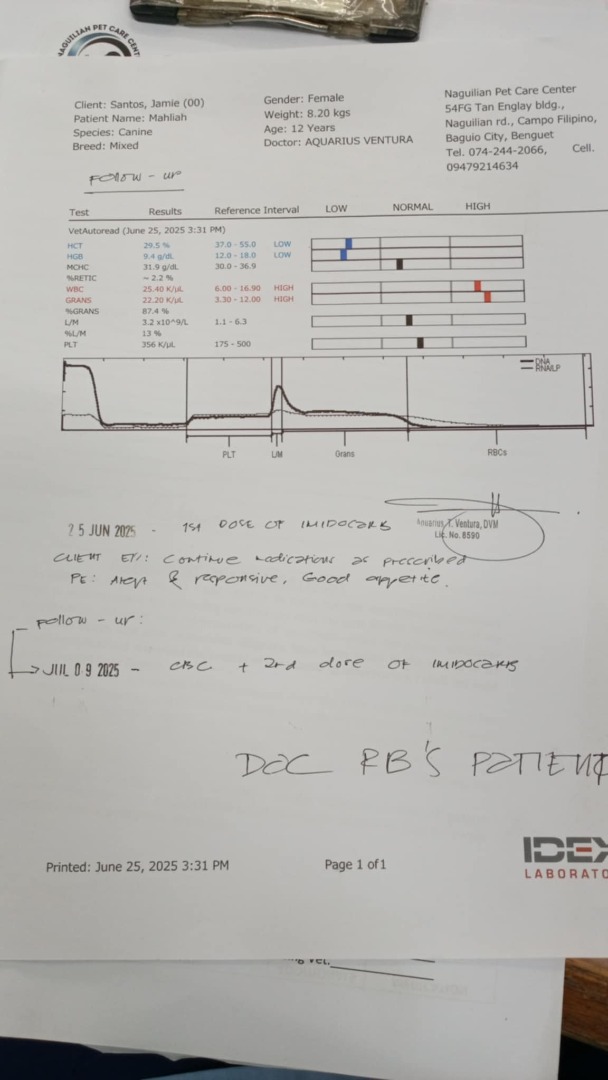 NAGUILIAN PET CARE CENT
Client: Santos, Jamie (00)
Patient Name: Mahliah
Species: Canine
Breed: Mixed
Gender: Female
Weight: 8.20 kgs
Age: 12 Years
Doctor: AQUARIUS VENTURA
Naguilian Pet Care Center
54FG Tan Englay bldg.,
Naguilian rd., Campo Filipino,
Baguio City, Benguet
Tel. 074-244-2066, Cell.
09479214634
FOLLOW - UP
Test Results Reference Interval LOW NORMAL HIGH
VetAutoread (June 25, 2025 3:31 PM)
HCT 29.5 % 37.0 - 55.0 LOW
HGB 9.4 g/dL 12.0 - 18.0 LOW
MCHC 31.9 g/dL 30.0 - 36.9
%RETIC ~ 2.2 %
WBC 25.40 K/µL 6.00 - 16.90 HIGH
GRANS 22.20 K/µL 3.30 - 12.00 HIGH
%GRANS 87.4 %
L/M 3.2 x10^9/L 1.1 - 6.3
%L/M 13 %
PLT 356 K/µL 175 - 500
DNA
RNA/LP
PLT L/M Grans RBCs
25 JUN 2025 - 1st DOSE OF IMIDOCARB
Aquarius T. Ventura, DVM
Lic. No. 8590
CLIENT : Continue medications as prescribed
PE: Alert & responsive, Good appetite.
Follow - up:
JUL 09 2025 - CBC + 2nd dose of IMIDOCARB
DOC RB'S PATIENT
Printed: June 25, 2025 3:31 PM Page 1 of 1
IDEX
LABORATO